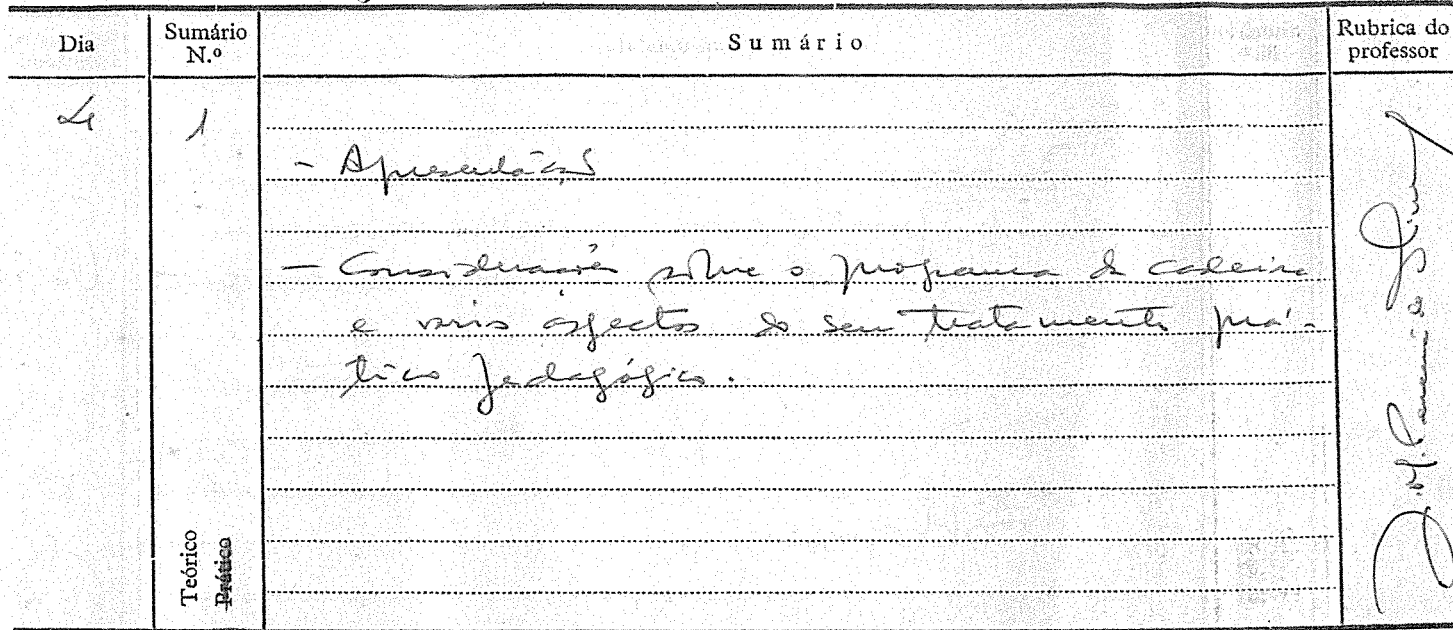 Dia
Sumário N.º
Sumário
Rubrica do professor
4
1
- Apresentação
- Considerações sobre o programa da cadeira
e vários aspectos do seu tratamento prá-
tico pedagógico.
Teórico
Prático